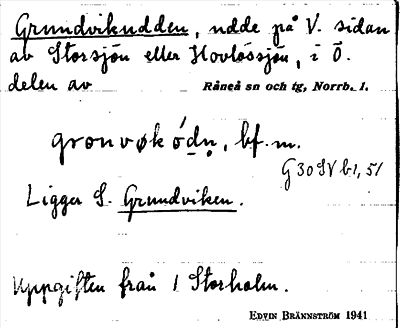 Grundvikudden, udde på V. sidan
av Storsjön eller Hovlössjön, i Ö.
delen av Råneå sn och tg, Norrb. l.
gronvøk ódn̥, bf. m.
G 30 SV b1, 51
Ligger S. Grundviken.
Uppgiften från 1 Storholm.
EDVIN BRÄNNSTRÖM 1941